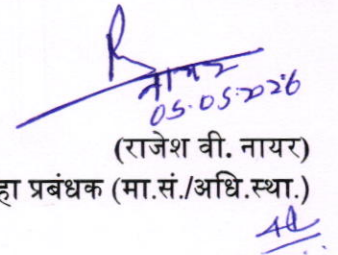 नायर
05.05.2026
(राजेश वी. नायर)
हा प्रबंधक (मा.सं./अधि.स्था.)